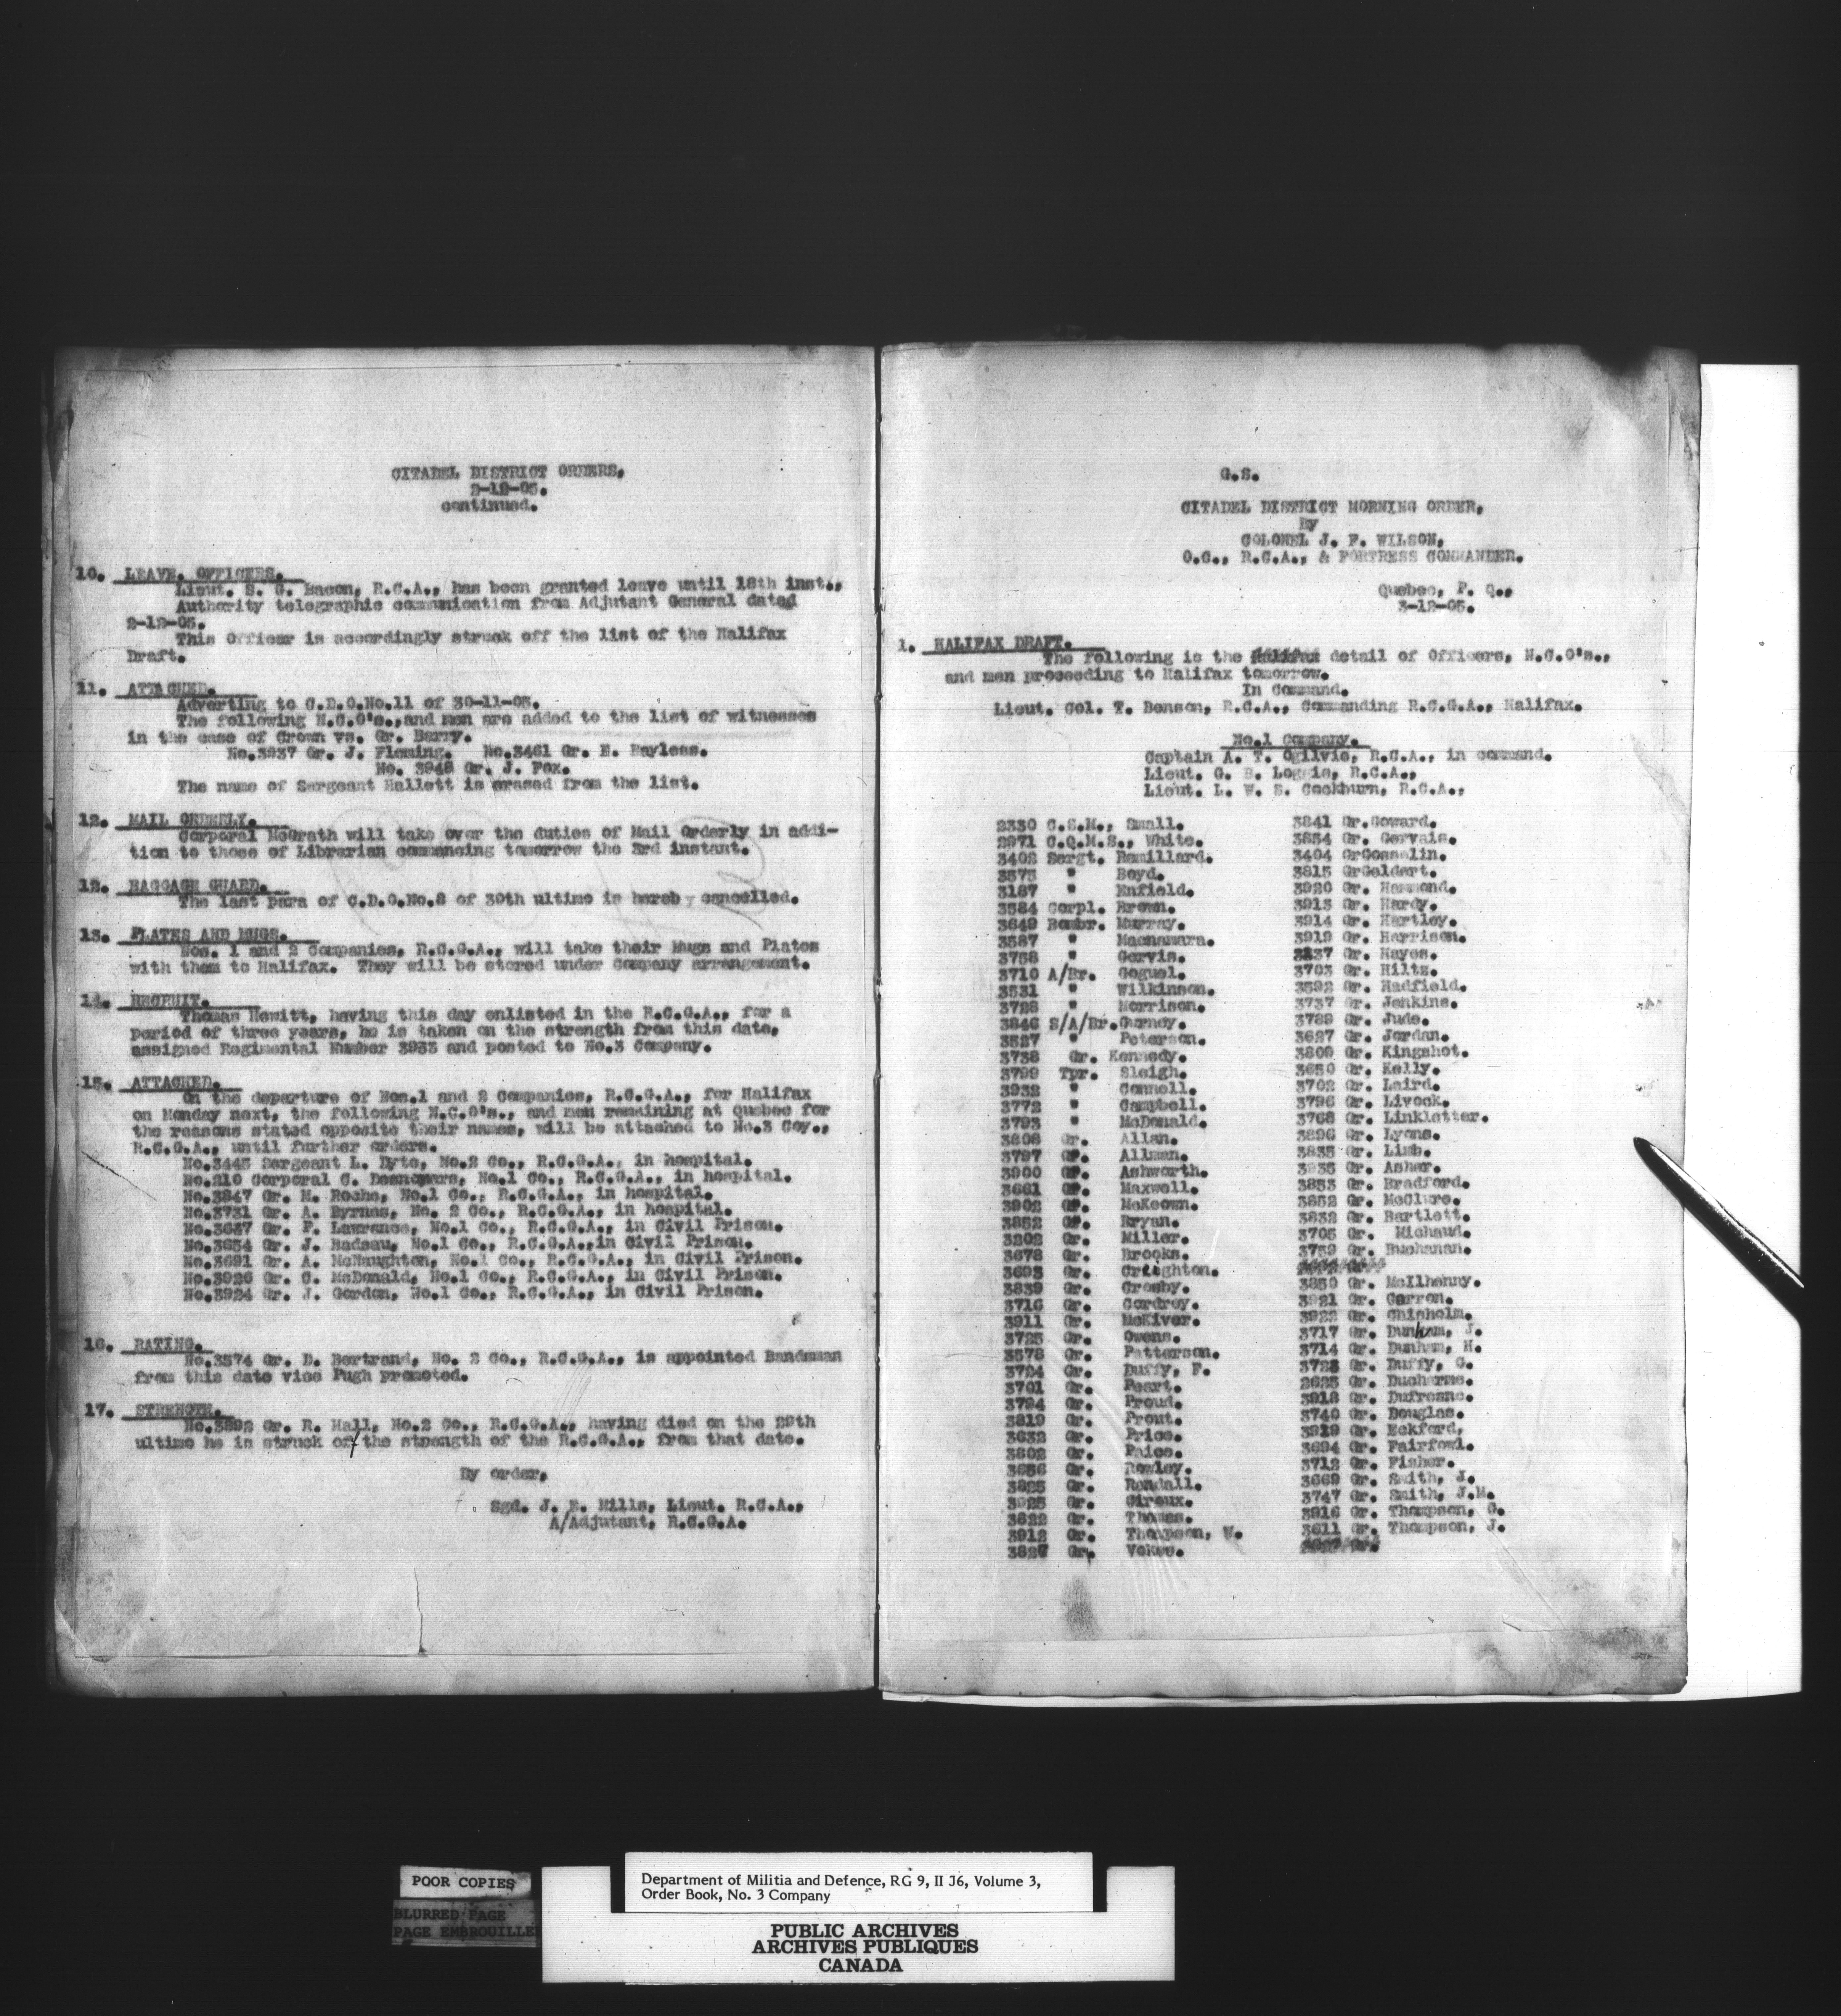 CITADEL DISTRICT ORDERS.
2-12-05.
continued.
10. LEAVE. OFFICERS.
Lieut. S. C. Bacon, R.C.A., has been granted leave until 18th inst.,
Authority telegraphic communication from Adjutant General dated
2-12-05.
This Officer is accordingly struck off the list of the Halifax
Draft.
11. ATTACHED.
Adverting to C.D.O.No.11 of 30-11-05.
The following N.C.O's.,and men are added to the list of witnesses
in the case of Crown vs. Gr. Barry.
No.3937 Gr. J. Fleming. No.3461 Gr. E. Bayless.
No. 3948 Gr. J. Fox.
The name of Sergeant Hallett is erased from the list.
12. MAIL ORDERLY.
Corporal McGrath will take over the duties of Mail Orderly in addi-
tion to those of Librarian commencing tomorrow the 3rd instant.
12. BAGGAGE GUARD.
The last para of C.D.O.No.8 of 30th ultimo is hereby cancelled.
13. PLATES AND MUGS.
Nos. 1 and 2 Companies, R.C.G.A., will take their Mugs and Plates
with them to Halifax. They will be stored under Company arrangement.
14. RECRUIT.
Thomas Hewitt, having this day enlisted in the R.C.G.A., for a
period of three years, he is taken on the strength from this date,
assigned Regimental Number 3933 and posted to No.3 Company.
15. ATTACHED.
On the departure of Nos.1 and 2 Companies, R.C.G.A., for Halifax
on Monday next, the following N.C.O's., and men remaining at Quebec for
the reasons stated opposite their names, will be attached to No.3 Coy.,
R.C.G.A., until further orders.
No.3445 Sergeant L. Dyte, No.2 Co., R.C.G.A., in hospital.
No.210 Corporal C. Desnoyers, No.1 Co., R.C.G.A., in hospital.
No.3847 Gr. M. Roche, No.1 Co., R.C.G.A., in hospital.
No.3731 Gr. A. Byrnes, No. 2 Co., R.C.G.A., in hospital.
No.3637 Gr. F. Lawrance, No.1 Co., R.C.G.A., in Civil Prison.
No.3654 Gr. J. Badeau, No.1 Co., R.C.G.A.,in Civil Prison.
No.3691 Gr. A. McNaughton, No.1 Co., R.C.G.A., in Civil Prison.
No.3926 Gr. C. McDonald, No.1 Co., R.C.G.A., in Civil Prison.
No.3924 Gr. J. Gordon, No.1 Co., R.C.G.A., in Civil Prison.
16. RATING.
No.3574 Gr. D. Bertrand, No. 2 Co., R.C.G.A., is appointed Bandsman
from this date vice Pugh promoted.
17. STRENGTH.
No.3892 Gr. R. Hall, No.2 Co., R.C.G.A., having died on the 29th
ultimo he is struck off the strength of the R.C.G.A., from that date.
By order,
Sgd. J. E. Mills, Lieut. R.C.A.,
A/Adjutant, R.C.G.A.
G.S.
CITADEL DISTRICT MORNING ORDER,
By
COLONEL J. F. WILSON,
O.C., R.C.A., & FORTRESS COMMANDER.
Quebec, P. Q.,
3-12-05.
1. HALIFAX DRAFT.
The following is the detail of Officers, N.C.O's.,
and men proceeding to Halifax tomorrow.
In Command.
Lieut. Col. T. Benson, R.C.A., Commanding R.C.G.A., Halifax.
No.1 Company.
Captain A. T. Ogilvie, R.C.A., in command.
Lieut. G. B. Loggie, R.C.A.,
Lieut. L. W. S. Cockburn, R.C.A.,
2330 C.S.M., Small.
2971 C.Q.M.S., White.
3402 Sergt. Remillard.
3575 " Boyd.
3187 " Enfield.
3584 Corpl. Brown.
3649 Bombr. Murray.
3587 " Macnamara.
3758 " Gervis.
3710 A/Br. Goguel.
3531 " Wilkinson.
3728 " Morrison.
3846 S/A/Br.Gurney.
3527 " Peterson.
3738 Gr. Kennedy.
3799 Tpr. Sleigh.
3932 " Connell.
3772 " Campbell.
3793 " McDonald.
3808 Gr. Allan.
3797 Gr. Allman.
3900 Gr. Ashworth.
3661 Gr. Maxwell.
3902 Gr. McKeown.
3852 Gr. Bryan.
3202 Gr. Miller.
3678 Gr. Brooks.
3693 Gr. Creighton.
3839 Gr. Crosby.
3716 Gr. Cordroy.
3911 Gr. McKiver.
3725 Gr. Owens.
3578 Gr. Patterson.
3724 Gr. Duffy, F.
3701 Gr. Peart.
3794 Gr. Proud.
3819 Gr. Prout.
3632 Gr. Price.
3802 Gr. Paice.
3656 Gr. Rowley.
3825 Gr. Randall.
3925 Gr. Giroux.
3622 Gr. Thomas.
3912 Gr. Thompson, W.
3827 Gr. Vokes.
3841 Gr.Goward.
3834 Gr. Gervais.
3404 GrGosselin.
3815 GrGeldart.
3920 Gr. Hammond.
3913 Gr. Hardy.
3914 Gr. Hartley.
3919 Gr. Harrison.
3837 Gr. Hayes.
3703 Gr. Hiltz.
3592 Gr. Hadfield.
3737 Gr. Jenkins.
3789 Gr. Jude.
3627 Gr. Jordan.
3809 Gr. Kingshot.
3650 Gr. Kelly.
3702 Gr. Laird.
3796 Gr. Livock.
3768 Gr. Linkletter.
3896 Gr. Lyons.
3835 Gr. Limb.
3935 Gr. Asher.
3853 Gr. Bradford.
3852 Gr. McClure.
3832 Gr. Bartlett.
3705 Gr. Michaud.
3759 Gr. Buchanan.
3850 Gr. McIlhenny.
3921 Gr. Carron.
3922 Gr. Chisholm.
3717 Gr. Dunham, J.
3714 Gr. Dunham, H.
3723 Gr. Duffy, G.
2625 Gr. Ducharme.
3918 Gr. Dufresne.
3740 Gr. Douglas.
3929 Gr. Eckford,
3694 Gr. Fairfowl.
3712 Gr. Fisher.
3669 Gr. Smith, J.
3747 Gr. Smith, J.M.
3916 Gr. Thompson, G.
3611 Gr. Thompson, J.
POOR COPIES
BLURRED PAGE
PAGE EMBROUILLEE
Department of Militia and Defence, RG 9, II J6, Volume 3,
Order Book, No. 3 Company
PUBLIC ARCHIVES
ARCHIVES PUBLIQUES
CANADA